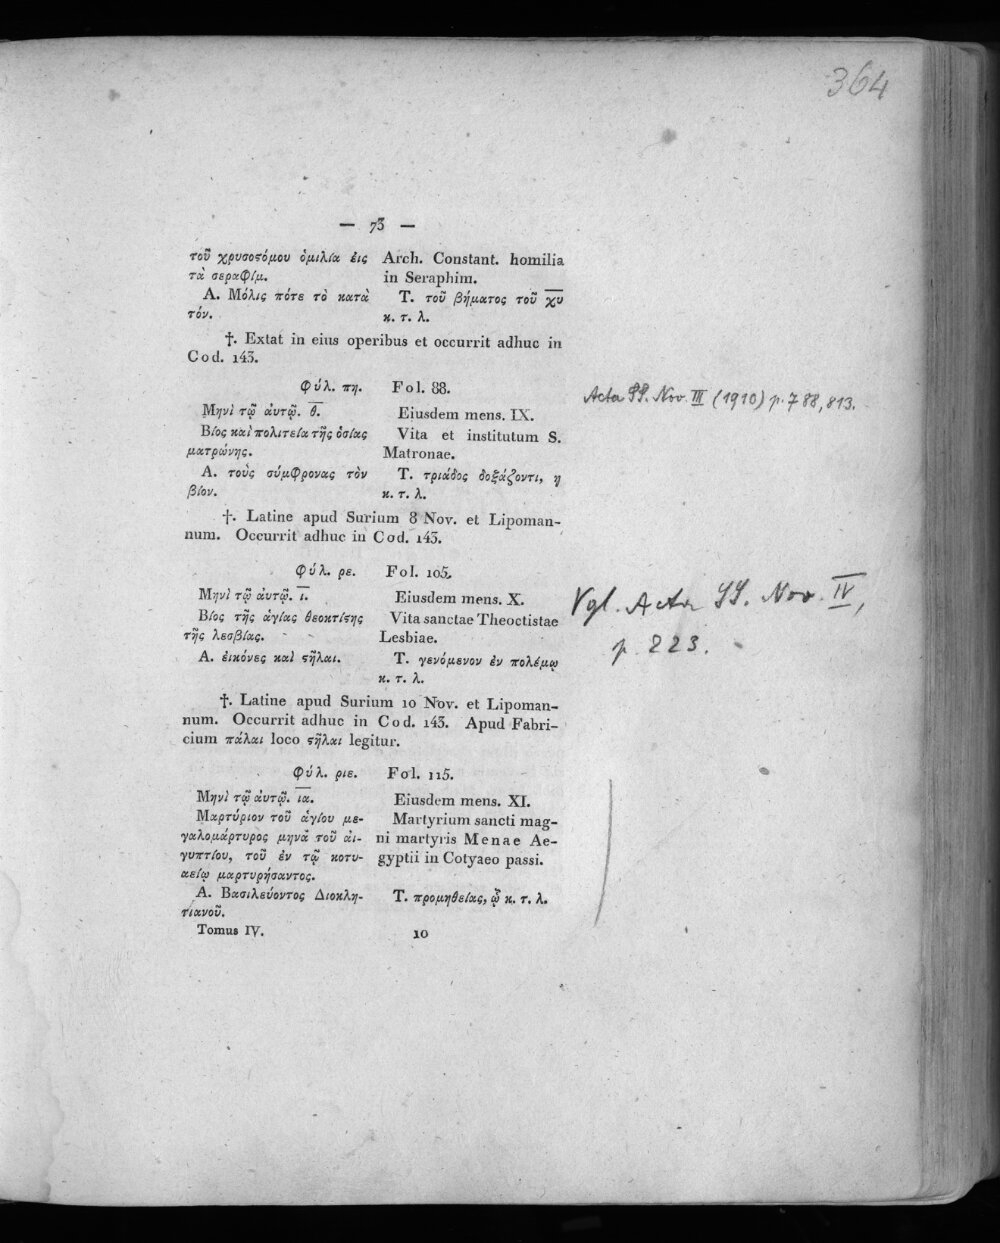 364
— 73 —
τοῦ χρυσοϛόμου ὁμιλία ἐις
τὰ σεραφίμ.
Α. Μόλις πότε τὸ κατὰ
τόν.
Arch. Constant. homilia
in Seraphim.
Τ. τοῦ βήματος τοῦ χ̅υ̅
κ. τ. λ.
†. Extat in eius operibus et occurrit adhuc in
Cod. 143.
Φύλ. πη. Fol. 88.
Μηνὶ τῷ ἀυτῷ. θ̅.
Βίος καὶ πολιτεία τῆς ὁσίας
ματρώνης.
Α. τοὺς σύμφρονας τὸν
βίον.
Eiusdem mens. IX.
Vita et institutum S.
Matronae.
Τ. τριάδος δοξάζοντι, η
κ. τ. λ.
Acta SS. Nov. III (1910) p. 788, 813.
†. Latine apud Surium 8 Nov. et Lipoman-
num. Occurrit adhuc in Cod. 143.
Φύλ. ρε. Fol. 105.
Μηνὶ τῷ ἀυτῷ. ι̅.
Βίος τῆς ἁγίας θεοκτίϛης
τῆς λεσβίας.
Α. ἐικόνες καὶ ϛῆλαι.
Eiusdem mens. X.
Vita sanctae Theoctistae
Lesbiae.
Τ. γενόμενον ἐν πολέμῳ
κ. τ. λ.
Vgl. Acta SS. Nov. IV,
p. 223.
†. Latine apud Surium 10 Nov. et Lipoman-
num. Occurrit adhuc in Cod. 143. Apud Fabri-
cium πάλαι loco ϛῆλαι legitur.
Φύλ. ριε. Fol. 115.
Μηνὶ τῷ ἀυτῷ. ι̅α̅.
Μαρτύριον τοῦ ἁγίου με-
γαλομάρτυρος μηνᾶ τοῦ ἀι-
γυπτίου, τοῦ ἐν τῷ κοτυ-
αείῳ μαρτυρήσαντος.
Α. Βασιλεύοντος Διοκλη-
τιανοῦ.
Eiusdem mens. XI.
Martyrium sancti mag-
ni martyris Menae Ae-
gyptii in Cotyaeo passi.
Τ. προμηθείας, ᾧ κ. τ. λ.
Tomus IV. 10